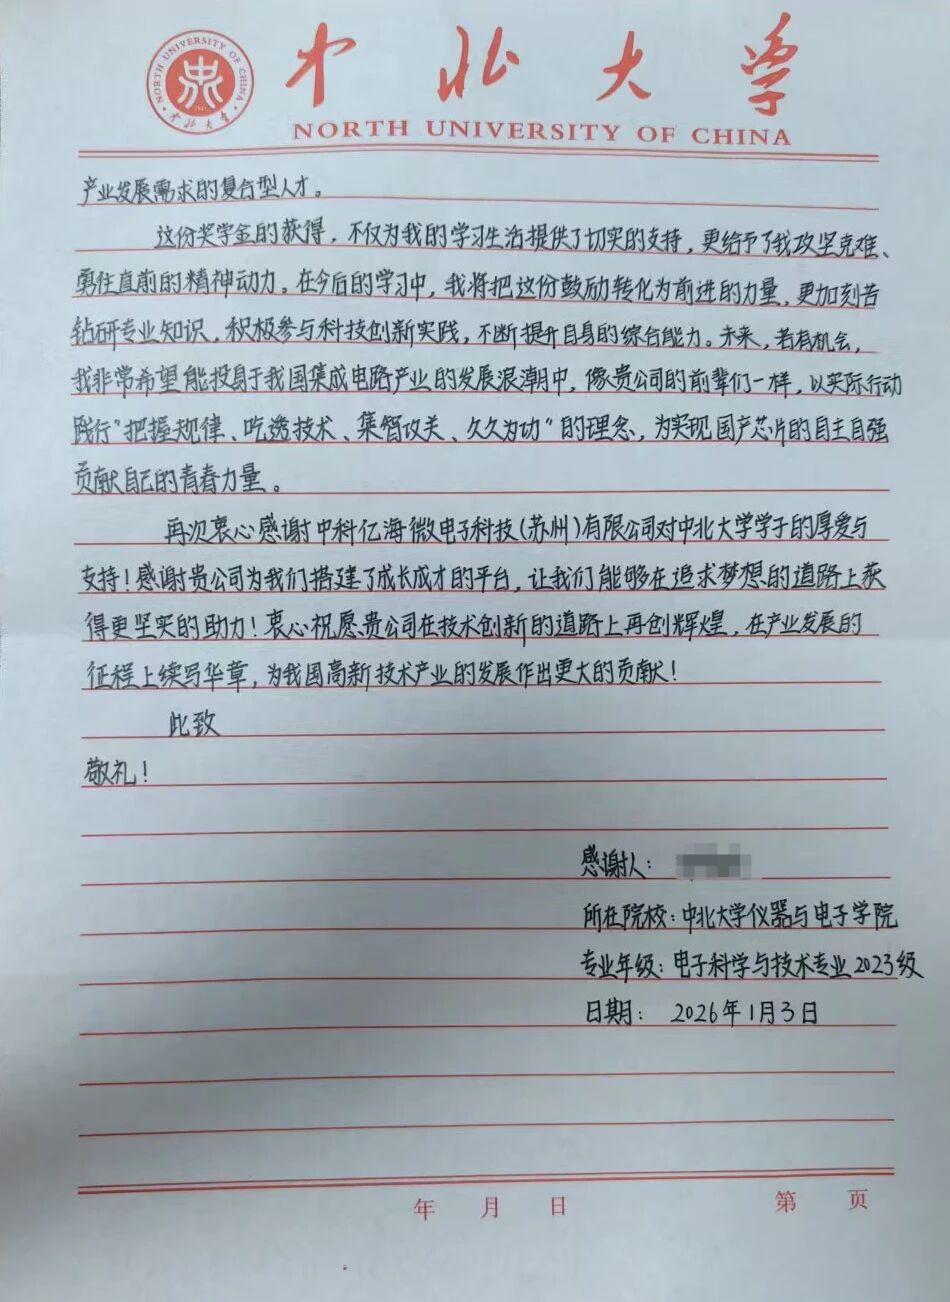 NORTH UNIVERSITY OF CHINA
中北大学
中北大学
NORTH UNIVERSITY OF CHINA
产业发展需求的复合型人才。
这份奖学金的获得，不仅为我的学习生活提供了切实的支持，更给予了我攻坚克难、
勇往直前的精神动力。在今后的学习中，我将把这份鼓励转化为前进的力量，更加刻苦
钻研专业知识，积极参与科技创新实践，不断提升自身的综合能力。未来，若有机会，
我非常希望能投身于我国集成电路产业的发展浪潮中，像贵公司的前辈们一样，以实际行动
践行“把握规律、吃透技术、集智攻关、久久为功”的理念，为实现国产芯片的自主自强
贡献自己的青春力量。
再次衷心感谢中科亿海微电子科技(苏州)有限公司对中北大学学子的厚爱与
支持！感谢贵公司为我们搭建了成长成才的平台，让我们能够在追求梦想的道路上获
得更坚实的助力！衷心祝愿贵公司在技术创新的道路上再创辉煌，在产业发展的
征程上续写华章，为我国高新技术产业的发展作出更大的贡献！
此致
敬礼！
感谢人：
所在院校：中北大学仪器与电子学院
专业年级：电子科学与技术专业2023级
日期： 2026年1月3日
年 月 日 第 页